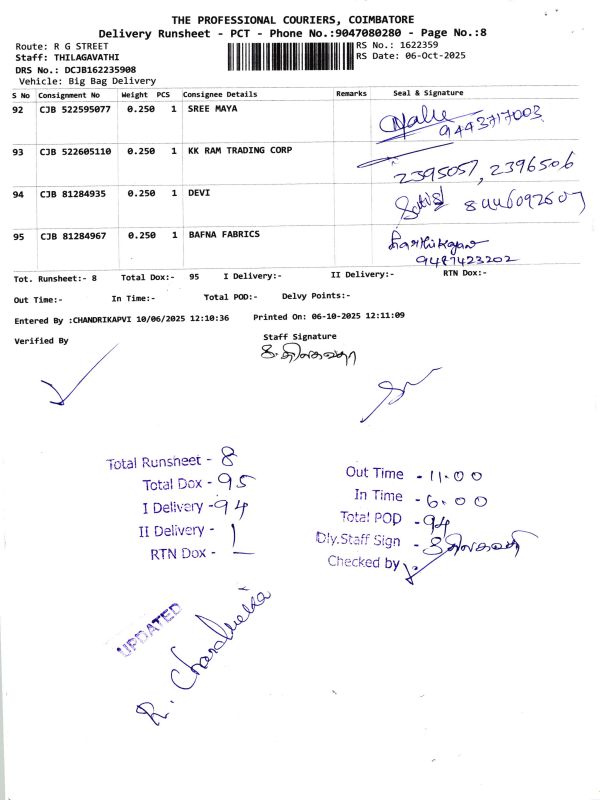 THE PROFESSIONAL COURIERS, COIMBATORE
Delivery Runsheet - PCT - Phone No.:9047080280 - Page No.:8
Route: R G STREET RS No.: 1622359
Staff: THILAGAVATHI RS Date: 06-Oct-2025
DRS No.: DCJB162235908
Vehicle: Big Bag Delivery
S No Consignment No Weight PCS Consignee Details Remarks Seal & Signature
92 CJB 522595077 0.250 1 SREE MAYA
9443717003
93 CJB 522605110 0.250 1 KK RAM TRADING CORP
2395057, 2396506
94 CJB 81284935 0.250 1 DEVI
95 CJB 81284967 0.250 1 BAFNA FABRICS
9487423202
Tot. Runsheet:- 8 Total Dox:- 95 I Delivery:- II Delivery:- RTN Dox:-
Out Time:- In Time:- Total POD:- Delvy Points:-
Entered By :CHANDRIKAPVI 10/06/2025 12:10:36 Printed On: 06-10-2025 12:11:09
Verified By Staff Signature
Total Runsheet - 8
Total Dox - 95
I Delivery - 94
II Delivery - 1
RTN Dox - —
Out Time - 11.00
In Time - 6.00
Total POD - 94
Dly.Staff Sign -
Checked by
UPDATED
R. Chandrika